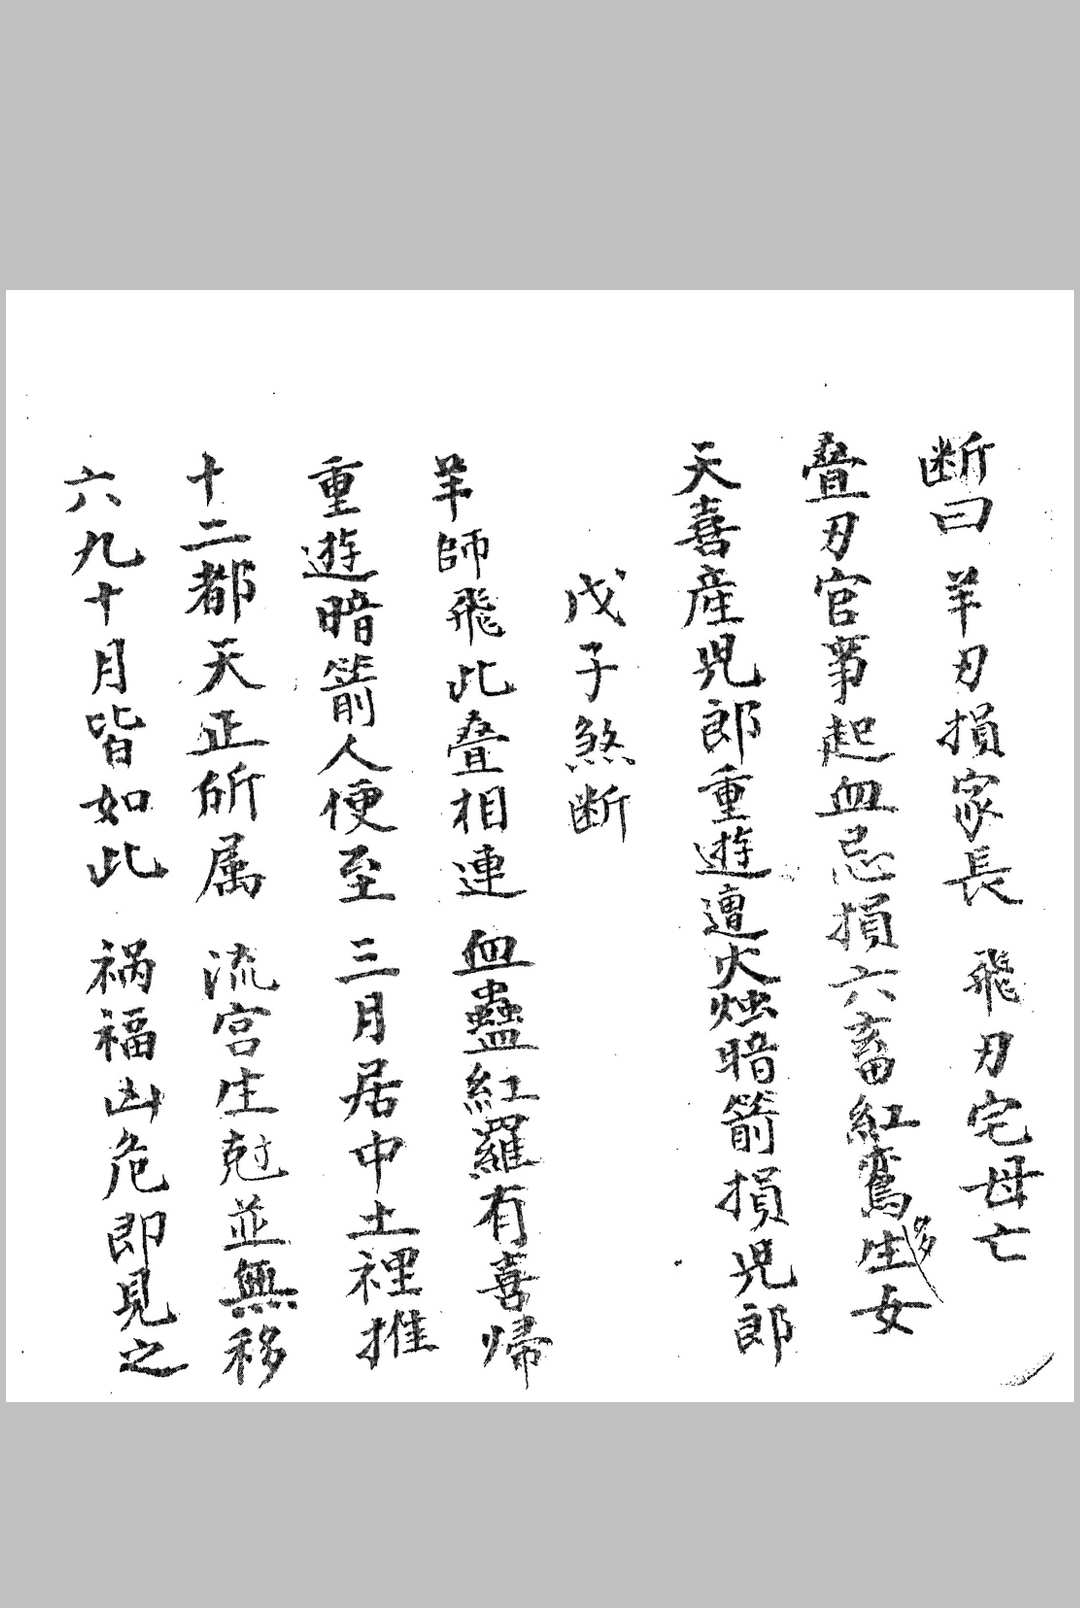 断曰 羊刃損家長 飛刃宅母亡
叠刃官事起血忌損六畜紅鸞生多女
天喜産児郎重遊遭火烛暗箭損児郎
戊子煞断
羊師飛此叠相連 血蠱紅羅有喜帰
重遊暗箭人便至 三月居中土裡推
十二都天正所属 流宮生尅並無移
六九十月皆如此 祸福凶危即見之